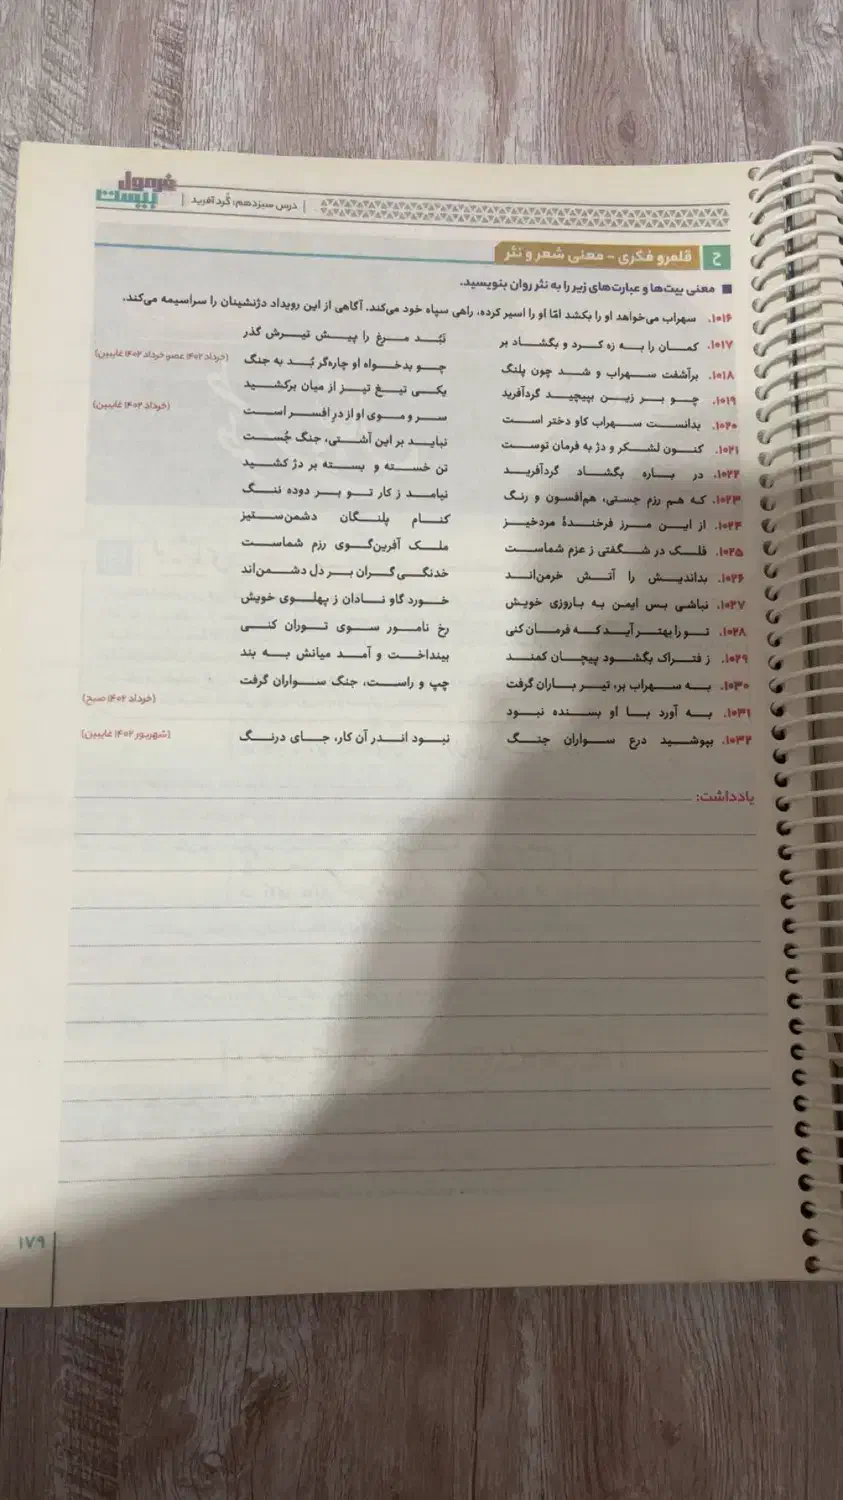 فرمول بیست | درس سیزدهم: گُردآفرید |
ح قلمرو فکری - معنی شعر و نثر
■ معنی بیت‌ها و عبارت‌های زیر را به نثر روان بنویسید.
۱۰۱۶. سهراب می‌خواهد او را بکشد امّا او را اسیر کرده، راهی سپاه خود می‌کند. آگاهی از این رویداد دژنشینان را سراسیمه می‌کند.
۱۰۱۷. کمان را به زه کرد و بگشاد بر نَبُد مرغ را پیش تیرش گذر
۱۰۱۸. برآشفت سهراب و شد چون پلنگ چو بدخواه او چاره‌گر بُد به جنگ (خرداد ۱۴۰۲ عصر، خرداد ۱۴۰۲ غایبین)
۱۰۱۹. چو بر زین بپیچید گردآفرید یکی تیغ تیز از میان برکشید
۱۰۲۰. بدانست سهراب کاو دختر است سر و موی او از درِ افسر است (خرداد ۱۴۰۲ غایبین)
۱۰۲۱. کنون لشکر و دژ به فرمان توست نباید بر این آشتی، جنگ جُست
۱۰۲۲. در باره بگشاد گردآفرید تن خسته و بسته بر دژ کشید
۱۰۲۳. که هم رزم جستی، هم‌افسون و رنگ نیامد ز کار تو بر دوده ننگ
۱۰۲۴. از این مرز فرخندهٔ مردخیز کنام پلنگان دشمن‌ستیز
۱۰۲۵. فلک در شگفتی ز عزم شماست ملک آفرین‌گوی رزم شماست
۱۰۲۶. بداندیش را آتش خرمن‌اند خدنگی گران بر دل دشمن‌اند
۱۰۲۷. نباشی بس ایمن به بازوی خویش خورد گاو نادان ز پهلوی خویش
۱۰۲۸. تو را بهتر آید که فرمان کنی رخ نامور سوی توران کنی
۱۰۲۹. ز فتراک بگشود پیچان کمند بینداخت و آمد میانش به بند
۱۰۳۰. به سهراب بر، تیر باران گرفت چپ و راست، جنگ سواران گرفت
۱۰۳۱. به آورد با او بسنده نبود (خرداد ۱۴۰۲ صبح)
۱۰۳۲. بپوشید درع سواران جنگ نبود اندر آن کار، جای درنگ (شهریور ۱۴۰۲ غایبین)
یادداشت:
۱۷۹